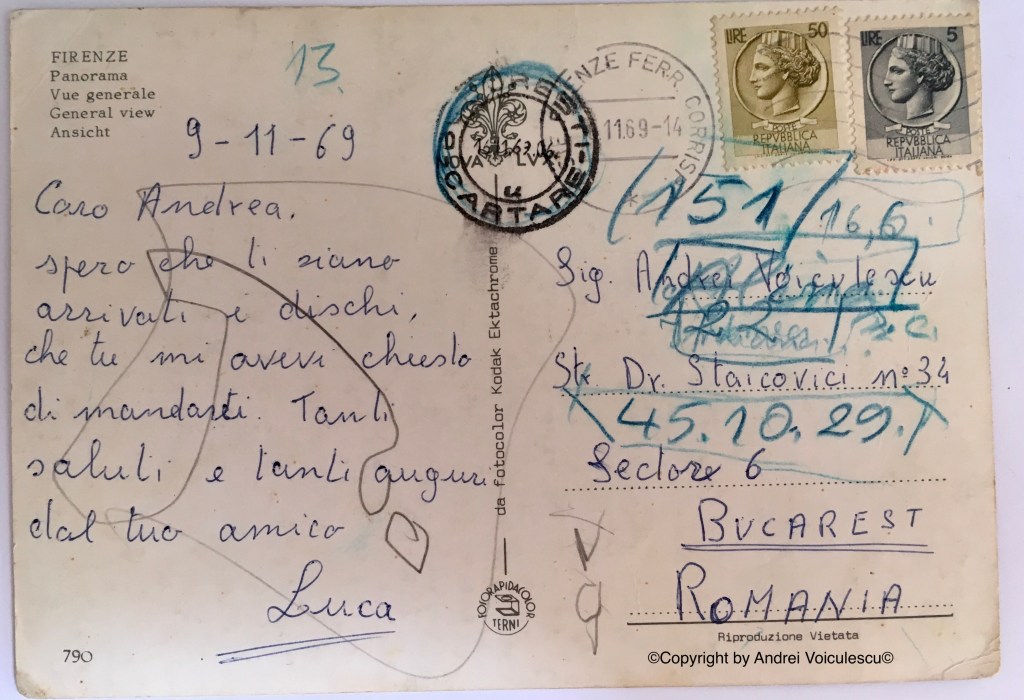 FIRENZE
Panorama
Vue generale
General view
Ansicht
13.
9-11-69
Caro Andrea,
spero che ti siano
arrivati i dischi,
che tu mi avevi chiesto
di mandarti. Tanti
saluti e tanti auguri
dal tuo amico
Luca
790
da fotocolor Kodak Ektachrome
FOTORAPIDACOLOR
TERNI
CARTARE
FERR. CORRISP
11.69-14
LIRE 50
POSTE
REPVBBLICA
ITALIANA
LIRE 5
POSTE
REPVBBLICA
ITALIANA
(151/16,6.
Sig. Andrei Voiculescu
Str. Dr. Staicovici nº 34
45.10.29.
Sectore 6
BUCAREST
ROMANIA
Riproduzione Vietata
©Copyright by Andrei Voiculescu©